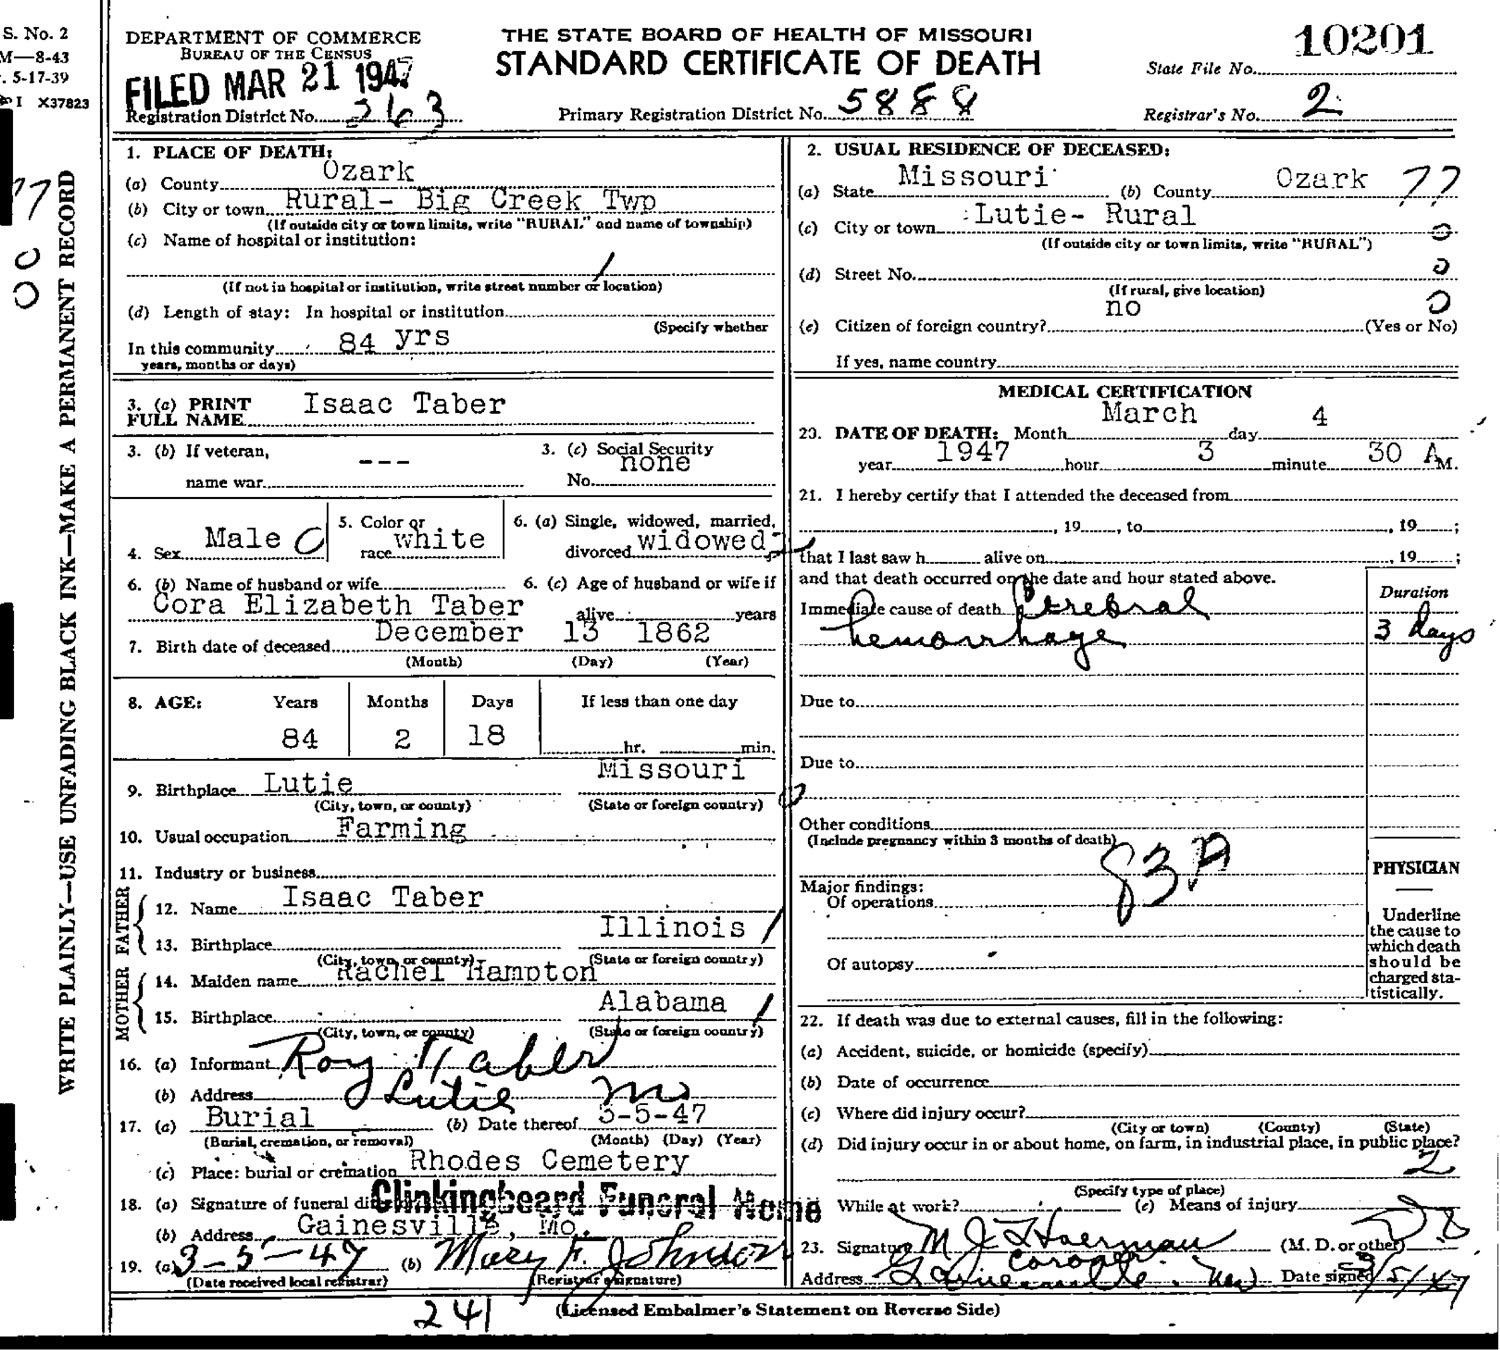 S. No. 2
M—8-43
. 5-17-39
I X37823
DEPARTMENT OF COMMERCE
BUREAU OF THE CENSUS
FILED MAR 21 1947
Registration District No. 263
THE STATE BOARD OF HEALTH OF MISSOURI
STANDARD CERTIFICATE OF DEATH
Primary Registration District No. 5888
10201
State File No.
Registrar's No. 2
WRITE PLAINLY—USE UNFADING BLACK INK—MAKE A PERMANENT RECORD
77
0
0
1. PLACE OF DEATH:
(a) County Ozark
(b) City or town Rural- Big Creek Twp
(If outside city or town limits, write "RURAL" and name of township)
(c) Name of hospital or institution:
(If not in hospital or institution, write street number or location)
(d) Length of stay: In hospital or institution
(Specify whether
In this community 84 yrs
years, months or days)
2. USUAL RESIDENCE OF DECEASED:
(a) State Missouri (b) County Ozark 77
(c) City or town Lutie- Rural 0
(If outside city or town limits, write "RURAL")
(d) Street No. 0
(If rural, give location)
(e) Citizen of foreign country? no (Yes or No) 0
If yes, name country
3. (a) PRINT FULL NAME Isaac Taber
3. (b) If veteran, name war ---
3. (c) Social Security No. none
4. Sex Male
5. Color or race white
6. (a) Single, widowed, married, divorced widowed
6. (b) Name of husband or wife Cora Elizabeth Taber
6. (c) Age of husband or wife if alive years
7. Birth date of deceased December 13 1862
(Month) (Day) (Year)
8. AGE: Years Months Days If less than one day
84 2 18 hr. min.
9. Birthplace Lutie Missouri
(City, town, or county) (State or foreign country)
10. Usual occupation Farming
11. Industry or business
FATHER
12. Name Isaac Taber
13. Birthplace Illinois
(City, town, or county) (State or foreign country)
MOTHER
14. Maiden name Rachel Hampton
15. Birthplace Alabama
(City, town, or county) (State or foreign country)
16. (a) Informant Roy Taber
(b) Address Lutie Mo
17. (a) Burial (b) Date thereof 3-5-47
(Burial, cremation, or removal) (Month) (Day) (Year)
(c) Place: burial or cremation Rhodes Cemetery
18. (a) Signature of funeral director Clinkingbeard Funeral Home
(b) Address Gainesville, Mo.
19. (a) 3-5-47 (b) Mary F. Johnson
(Date received local registrar) (Registrar's signature)
MEDICAL CERTIFICATION
20. DATE OF DEATH: Month March day 4
year 1947 hour 3 minute 30 A M.
21. I hereby certify that I attended the deceased from
, 19 , to , 19 ;
that I last saw h alive on , 19 ;
and that death occurred on the date and hour stated above.
Duration
Immediate cause of death Cerebral
hemorrhage 3 days
Due to
Due to
Other conditions
(Include pregnancy within 3 months of death)
83A
Major findings:
Of operations
Of autopsy
PHYSICIAN
Underline
the cause to
which death
should be
charged sta-
tistically.
22. If death was due to external causes, fill in the following:
(a) Accident, suicide, or homicide (specify)
(b) Date of occurrence
(c) Where did injury occur?
(City or town) (County) (State)
(d) Did injury occur in or about home, on farm, in industrial place, in public place?
2
(Specify type of place)
While at work? (e) Means of injury
23. Signature M J Hoerman (M. D. or other)
Coroner
Address Gainesville Date signed 3/5/47
241
(Licensed Embalmer's Statement on Reverse Side)